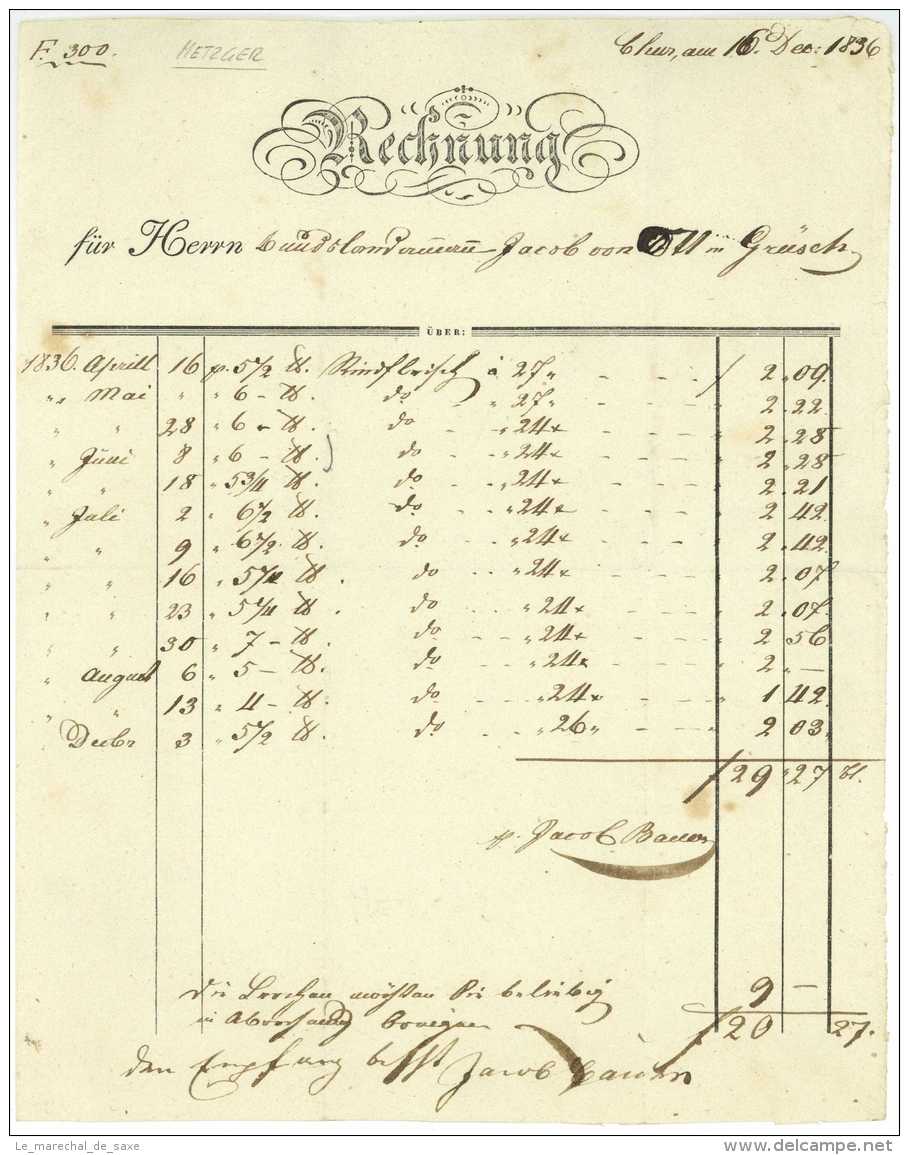 F. 300. METZGER Chur, am 16. Dec: 1836
Rechnung
für Herrn Bundslandammann Jacob von Ott in Grüsch
ÜBER:
1836. Aprill 16 p. 5 1/2 ℔. Rindfleisch à 27 „ - - - f 2 „ 09
„ „ Mai „ „ 6 - ℔ do „ 27 „ - - - 2 . 22
„ „ 28 „ 6 - ℔ . do „ 24 x - - - 2 . 28
„ Juni 8 „ 6 - ℔ . do „ 24 x - - - 2 . 28
„ „ 18 „ 5 3/4 ℔ . do „ 24 x - - - 2 . 21
„ Juli 2 „ 6 1/2 ℔ . do „ 24 x - - - 2 . 42
„ „ 9 „ 6 1/2 ℔ . do „ 24 x - - - 2 . 42
„ „ 16 „ 5 1/4 ℔ . do „ 24 x - - - 2 . 07
„ „ 23 „ 5 1/4 ℔ . do „ 24 x - - - 2 . 07.
„ „ 30 „ 7 - ℔ . do „ 24 x - - - 2 56
„ August 6 „ 5 - ℔ . do „ 24 x - - - 2 „ —
„ „ 13 „ 4 - ℔ . do „ 24 x - - - 1 42
Decbr 3 „ 5 1/2 ℔ . do „ 26 „ - - - 2 03
f 29 „ 27 bl.
p. Jacob Bauer
die möchten Sie beliebig 9 —
in f 20 27.
den Empfang Jacob Bauer
Le_marechal_de_saxe
www.delcampe.net